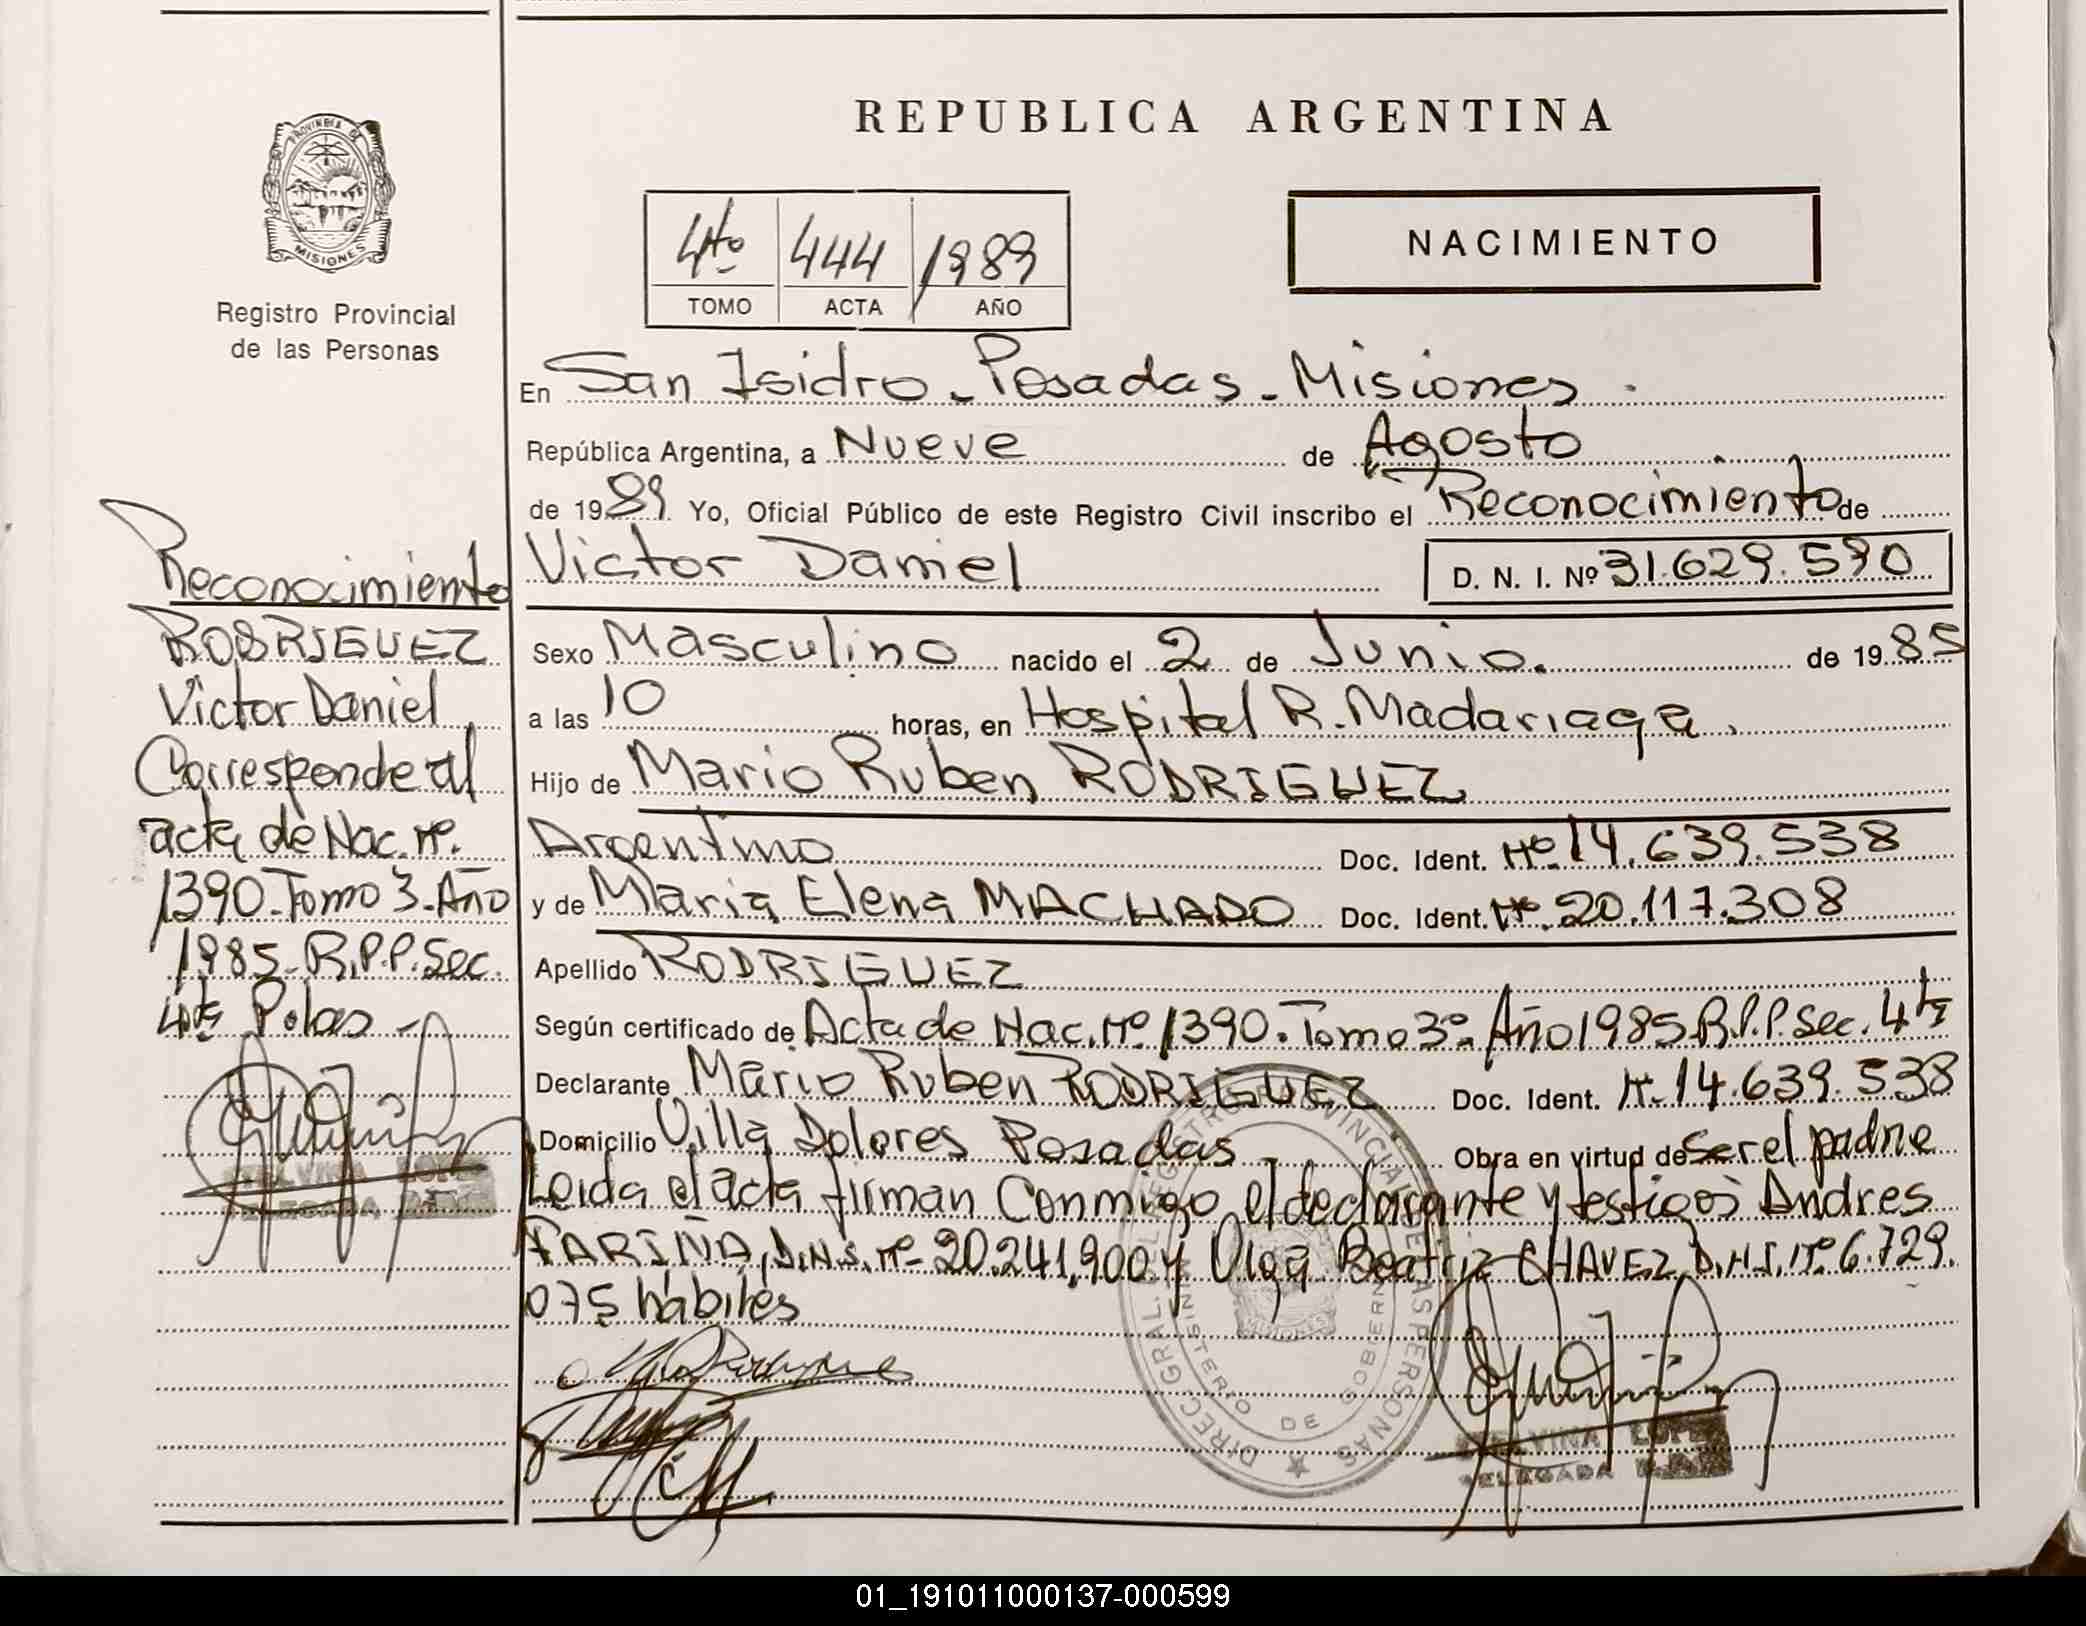 REPUBLICA ARGENTINA
PROVINCIA DE MISIONES
Registro Provincial
de las Personas
4to 444 1989
TOMO ACTA AÑO
NACIMIENTO
En San Isidro - Posadas - Misiones
República Argentina, a Nueve de Agosto
de 1989 Yo, Oficial Público de este Registro Civil inscribo el Reconocimiento de
Victor Daniel D. N. I. Nº 31.629.590
Sexo Masculino nacido el 2 de Junio. de 1985
a las 10 horas, en Hospital R. Madariaga.
Hijo de Mario Ruben RODRIGUEZ
Argentino Doc. Ident. Nº 14.639.538
y de Maria Elena MACHADO Doc. Ident. Nº 20.117.308
Apellido RODRIGUEZ
Según certificado de Acta de Nac. Nº 1390. Tomo 3º. Año 1985 R.P.P. Sec. 4ta
Declarante Mario Ruben RODRIGUEZ Doc. Ident. N. 14.639.538
Domicilio Villa Dolores Posadas Obra en virtud de Ser el padre
Leida el acta firman Conmigo el declarante y testigos Andres
FARIÑA, D.N.I. Nº 20.241.900 y Olga Beatriz CHAVEZ D.N.I. Nº 6.729.
075 hábiles
Reconocimiento
RODRIGUEZ
Victor Daniel
Corresponde al
acta de Nac. Nº.
1390. Tomo 3. Año
1985 - R.P.P. Sec.
4ta Pdas -
LOPEZ
DELEGADA
DIREC. GRAL. DEL REGISTRO PROVINCIAL DE LAS PERSONAS
MINISTERIO DE GOBIERNO
MISIONES
LOPEZ
DELEGADA
01_191011000137-000599